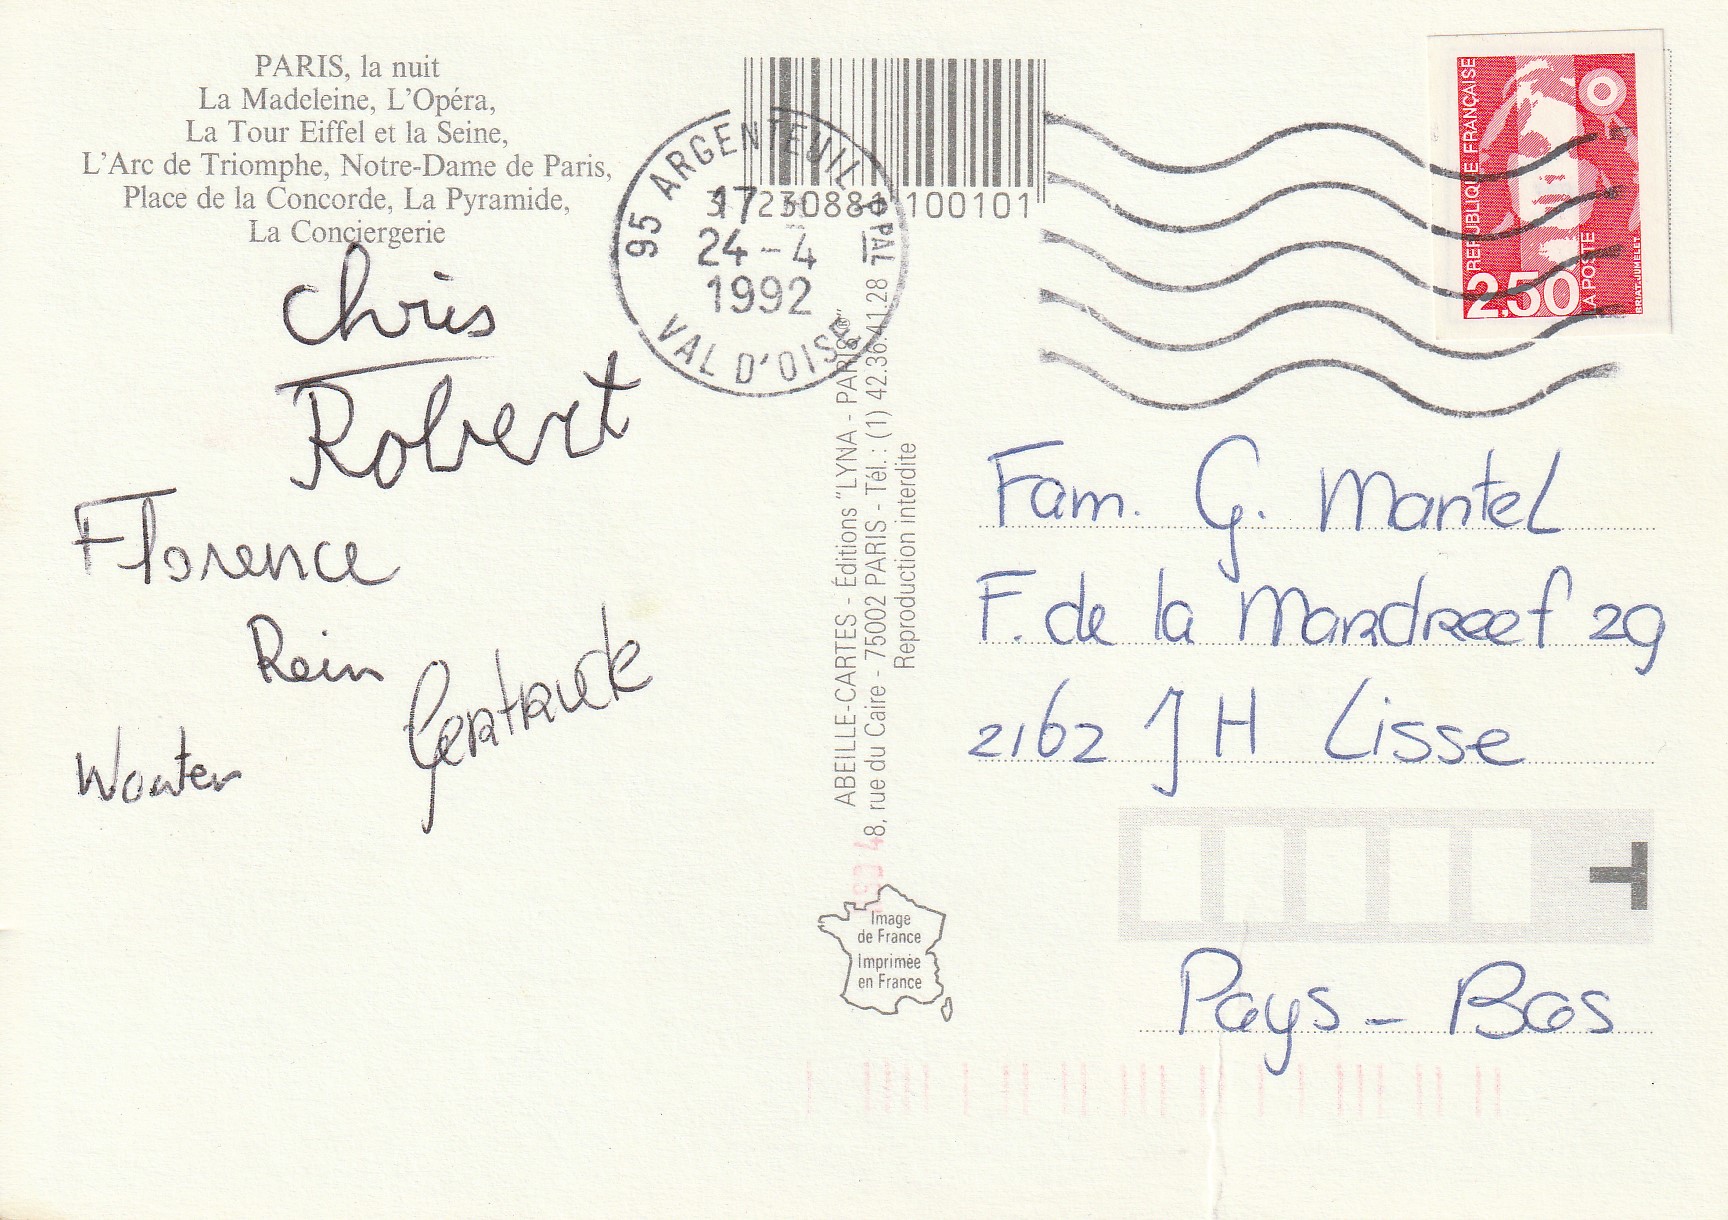 PARIS, la nuit
La Madeleine, L'Opéra,
La Tour Eiffel et la Seine,
L'Arc de Triomphe, Notre-Dame de Paris,
Place de la Concorde, La Pyramide,
La Conciergerie
Chris
Robert
Florence
Rein
Gertrude
Wouter
95 ARGENTEUIL PPAL
17 H
24-4
1992
VAL D'OISE
100101
ABEILLE-CARTES - Éditions "LYNA - PARIS®"
48, rue du Caire - 75002 PARIS - Tél.: (1) 42.36.41.28
Reproduction interdite
Image
de France
Imprimée
en France
REPUBLIQUE FRANÇAISE
2,50
LA POSTE
BRIAT-JUMELET
Fam. G. Mantel
F. de la Mardreef 29
2162 JH Lisse
T
Pays - Bas